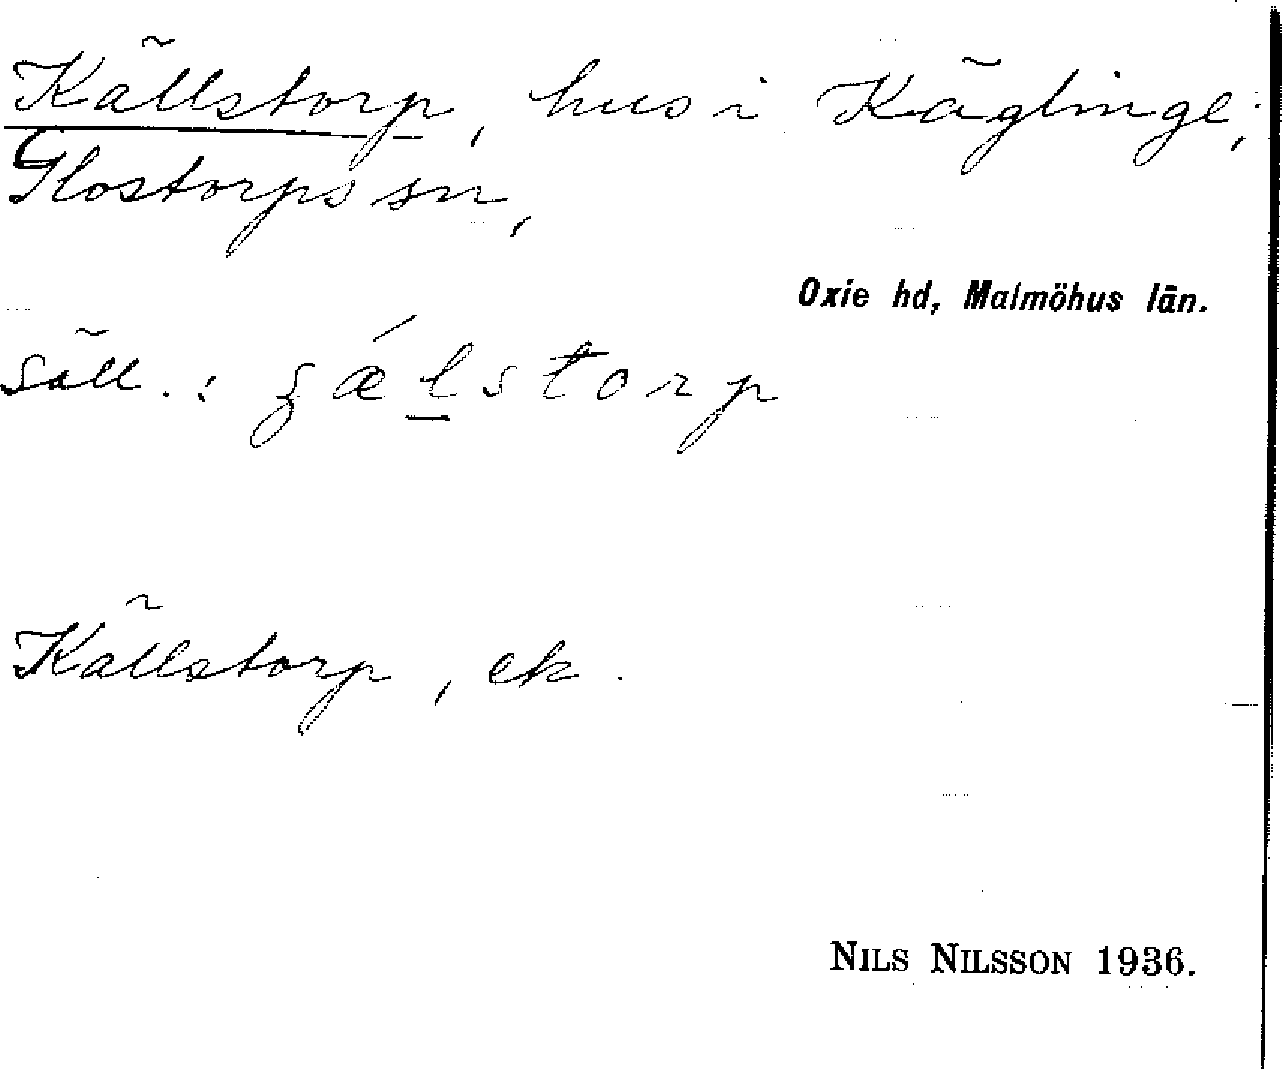 Källstorp, hus i Käglinge,
Glostorps sn,
Oxie hd, Malmöhus län.
säll.: ʒǽlstorp
Källstorp, ek.
NILS NILSSON 1936.